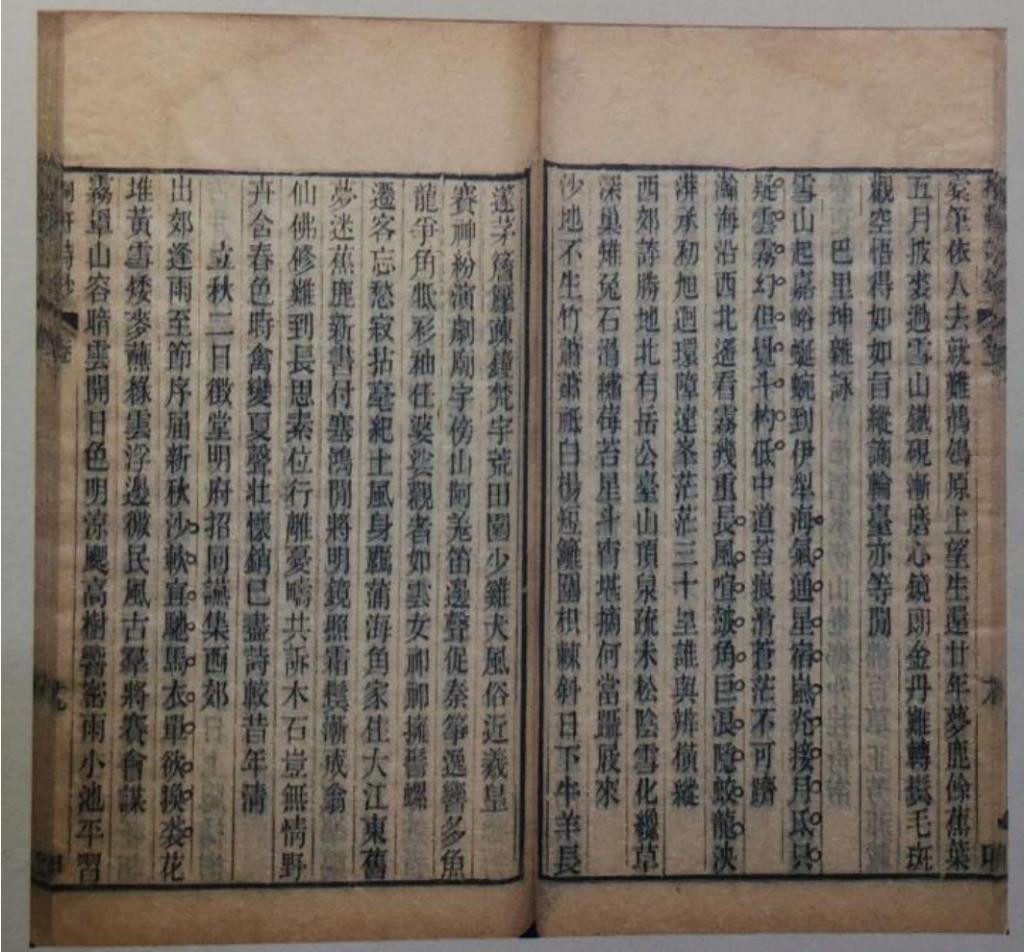 筆依人去就難鶺鴒原上望生還廿年夢鹿餘蕉葉
五月披裘過雪山鐵硯漸磨心鏡朗金丹難轉鬢毛斑
觀空悟得如如旨縱謫輪臺亦等閒
巴里坤雜詠
雪山起嘉峪蜿蜒到伊犁海氣通星宿嵐光接月氐只
疑雲霧幻但覺斗杓低中道苔痕滑蒼茫不可躋
瀚海沿西北遙看霧幾重長風喧鼓角巨浪隱蛟龍泱
漭承初旭迴環障遠峯茫茫三十里誰與辨橫縱
西郊誇勝地北有岳公臺山頂泉疏未松陰雪化纔草
深巢雉兔石滑繡莓苔星斗宵堪摘何當躡屐來
沙地不生竹蕭蕭祗白楊短籬圍枳棘斜日下牛羊長
蓬茅簷屋疎鐘梵宇荒田園少雞犬風俗近羲皇
賽神紛演劇廟宇傍山阿羌笛邊聲促秦箏逸響多魚
龍爭角牴彩袖任婆娑觀者如雲女祁祁擁髻螺
遷客忘愁寂拈毫紀土風身羈蒲海角家住大江東舊
夢迷蕉鹿新書付塞鴻閒將明鏡照霜鬢漸成翁
仙佛修難到長思素位行離憂疇共訴木石豈無情野
卉含春色時禽變夏聲壯懷銷已盡詩較昔年清
立秋二日徵堂明府招同讌集西郊
出郊逢雨至節序届新秋沙軟宜馳馬衣單欲換裘花
堆黃雪矮麥蘸綠雲浮邊徼民風古羣將賽會謀
霧罩山容暗雲開日色明涼颸高樹響密雨小池平習